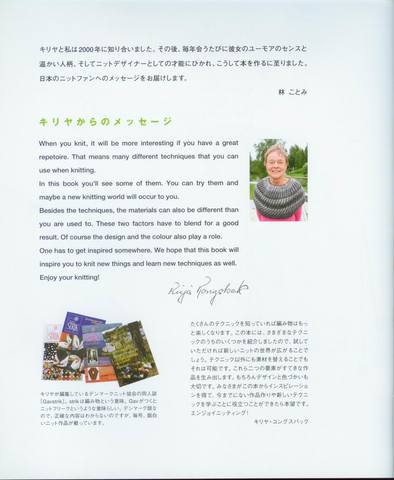 キリヤと私は2000年に知り合いました。その後、毎年会うたびに彼女のユーモアのセンスと
温かい人柄、そしてニットデザイナーとしての才能にひかれ、こうして本を作るに至りました。
日本のニットファンへのメッセージをお届けします。
林 ことみ
キリヤからのメッセージ
When you knit, it will be more interesting if you have a great
repetoire. That means many different techniques that you can
use when knitting.
In this book you'll see some of them. You can try them and
maybe a new knitting world will occur to you.
Besides the techniques, the materials can also be different than
you are used to. These two factors have to blend for a good
result. Of course the design and the colour also play a role.
One has to get inspired somewhere. We hope that this book will
inspire you to knit new things and learn new techniques as well.
Enjoy your knitting!
キリヤが編集しているデンマークニット協会の同人誌
「Gavstrik」。strikは編み物という意味。Gavがつくと
ニットフリークというような意味らしい。デンマーク語な
ので、正確な内容はわからないのですが、毎号、面白
いニット作品が載っています。
たくさんのテクニックを知っていれば編み物はもっ
と楽しくなります。この本には、さまざまなテクニ
ックのうちのいくつかを紹介しましたので、試して
いただければ新しいニットの世界が広がることで
しょう。テクニック以外にも素材を替えることでも
それは可能です。これら二つの要素がすてきな作
品を生み出します。もちろんデザインと色づかいも
大切です。みなさまがこの本からインスピレーショ
ンを得て、今までにない作品作りや新しいテクニッ
クを学ぶことに役立つことができたら本望です。
エンジョイニッティング!
キリヤ・コングスバック